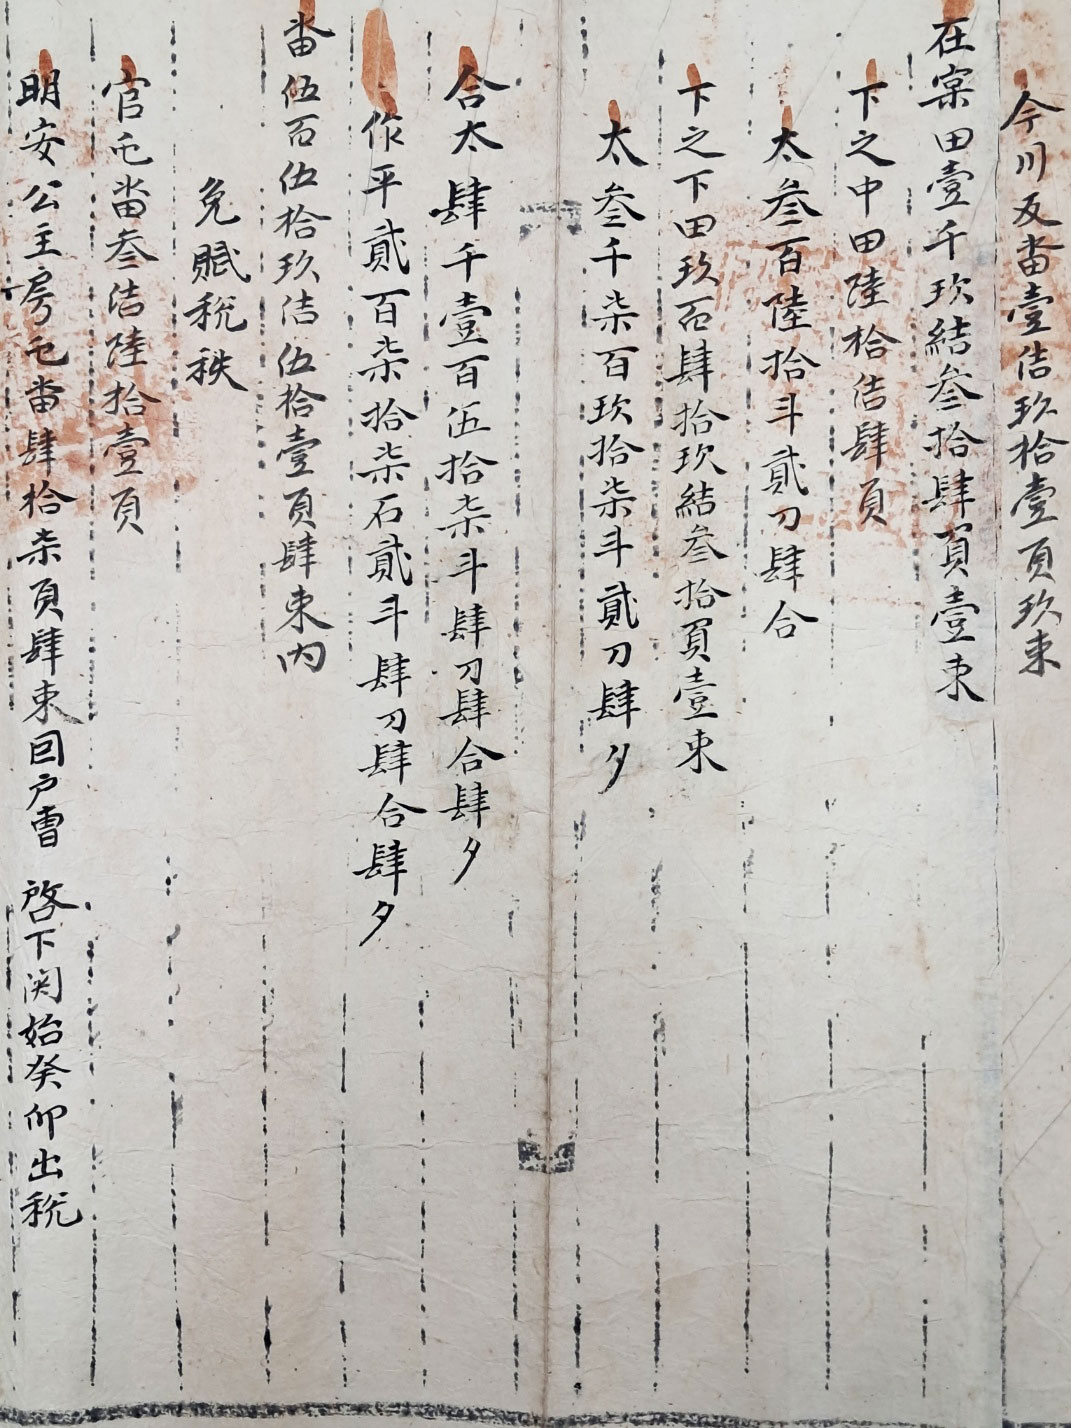 今川反畓壹佶玖拾壹頁玖束
在案田壹千玖結叁拾肆負壹束
下之中田陸拾佶肆頁
太叁百陸拾斗貳刀肆合
下之下田玖百肆拾玖結叁拾負壹束
太叁千柒百玖拾柒斗貳刀肆夕
合太肆千壹百伍拾柒斗肆刀肆合肆夕
作平貳百柒拾柒石貳斗肆刀肆合肆夕
畓伍百伍拾玖佶伍拾壹頁肆束內
免賦稅秩
官屯畓叁佶陸拾壹頁
明安公主房屯畓肆拾柒頁肆束因戶曺 啓下関始癸卯出稅